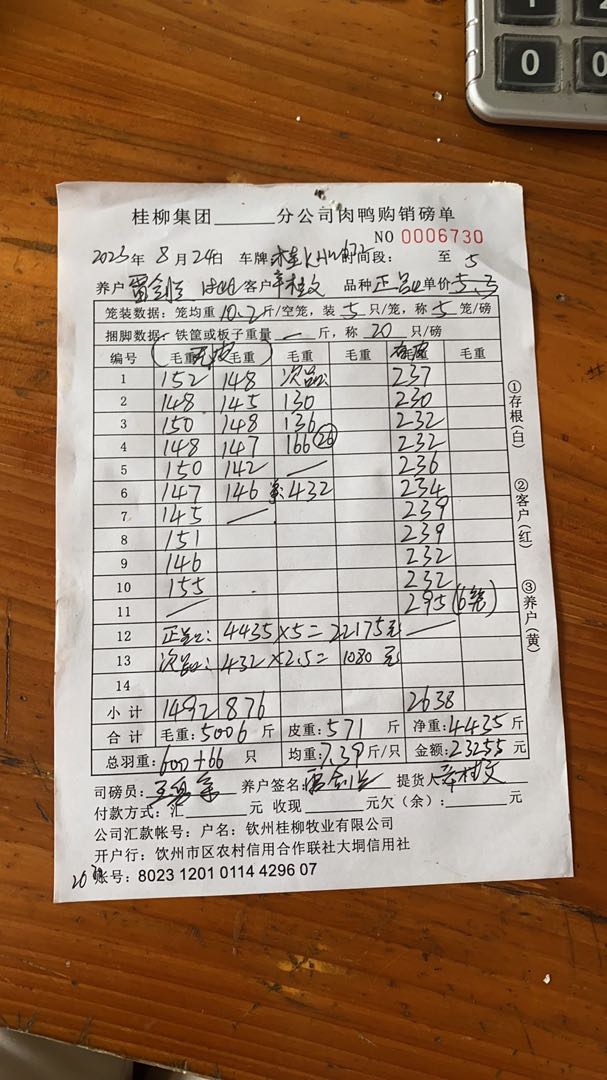 0 0
桂柳集团______分公司肉鸭购销磅单
NO 0006730
2023年 8月24日 车牌 时间段: 至 5
养户 客户 品种 正品 单价 5.
笼装数据: 笼均重10.2斤/空笼, 装5只/笼, 称5笼/磅
捆脚数据: 铁筐或板子重量 — 斤, 称 20 只/磅
编号 毛重 毛重 毛重 毛重 毛重 毛重
1 152 148 次品: 237
2 148 145 130 230
3 150 148 136 232
4 148 147 166 (26) 232
5 150 142 — 236
6 147 146 432 234
7 145 — 239
8 151 239
9 146 232
10 155 232
11 — 295 (6笼)
12 正品: 4435×5=22175元 —
13 次品: 432×2.5=1080元
14
小计 1492 876 2638
合计 毛重: 5006斤 皮重: 571斤 净重: 4435斤
总羽重: 600+66 只 均重: 7.39斤/只 金额: 23255元
司磅员: 养户签名: 提货人
付款方式: 汇______元 收现______元欠(余):______元
公司汇款帐号: 户名: 钦州桂柳牧业有限公司
开户行: 钦州市区农村信用合作联社大垌信用社
账号: 8023 1201 0114 4296 07
①存根(白)
②客户(红)
③养户(黄)